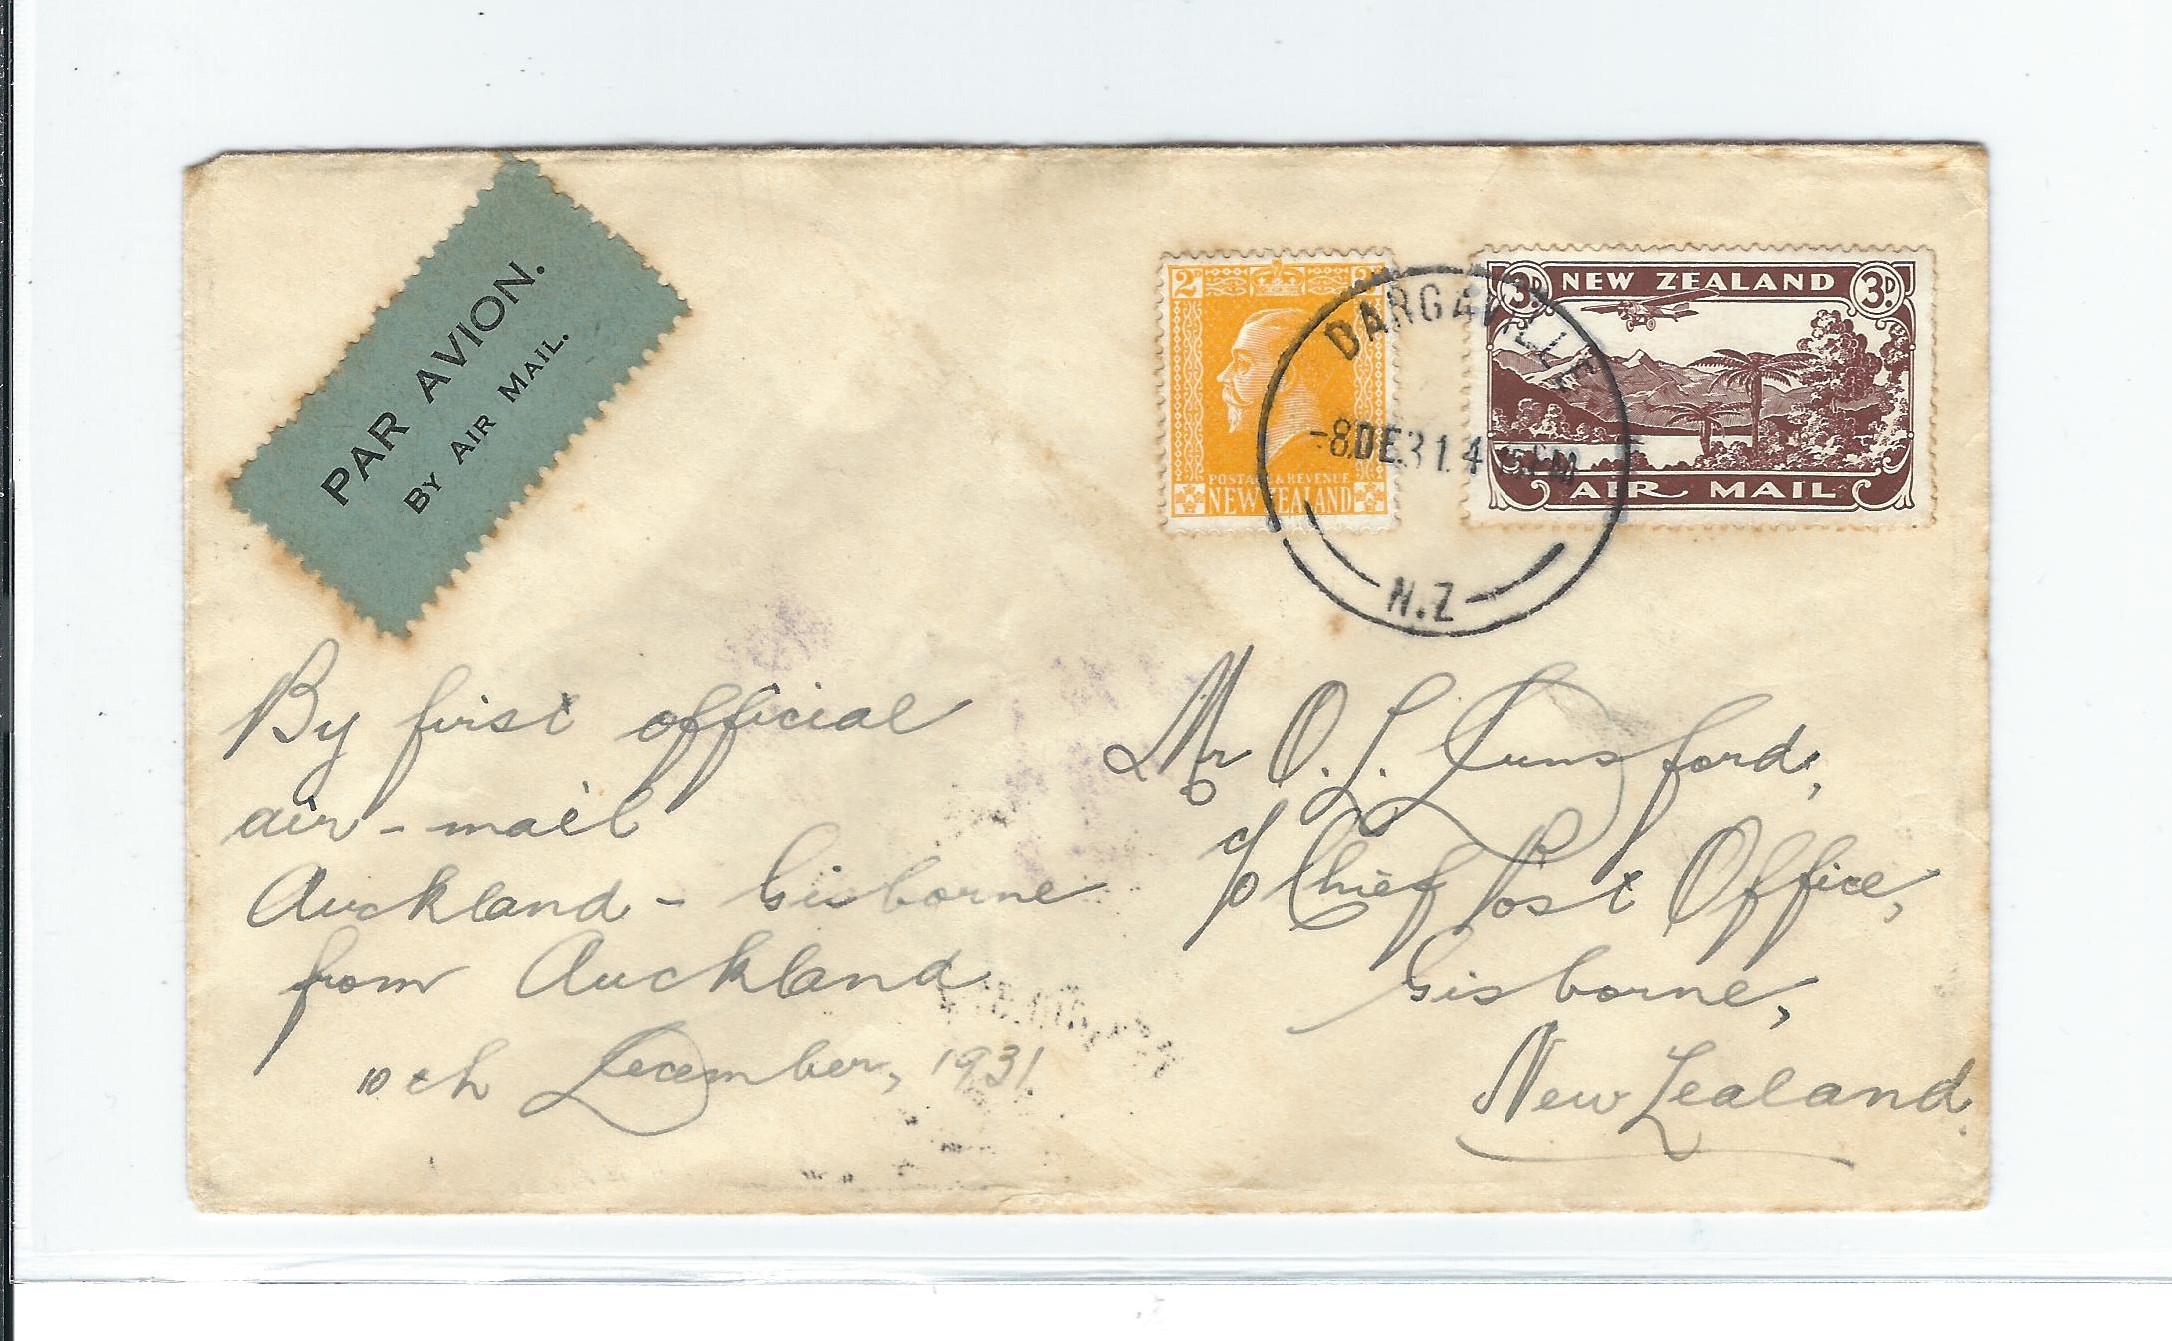 PAR AVION.
BY AIR MAIL.
2D
POSTAGE & REVENUE
NEW ZEALAND
3D NEW ZEALAND 3D
AIR MAIL
DARGAVILLE
-8DE31 4 PM
N.Z
By first official
air-mail
Auckland - Gisborne
from Auckland
10th December, 1931
Mr O. L. Dunsford,
c/o Chief Post Office,
Gisborne,
New Zealand.